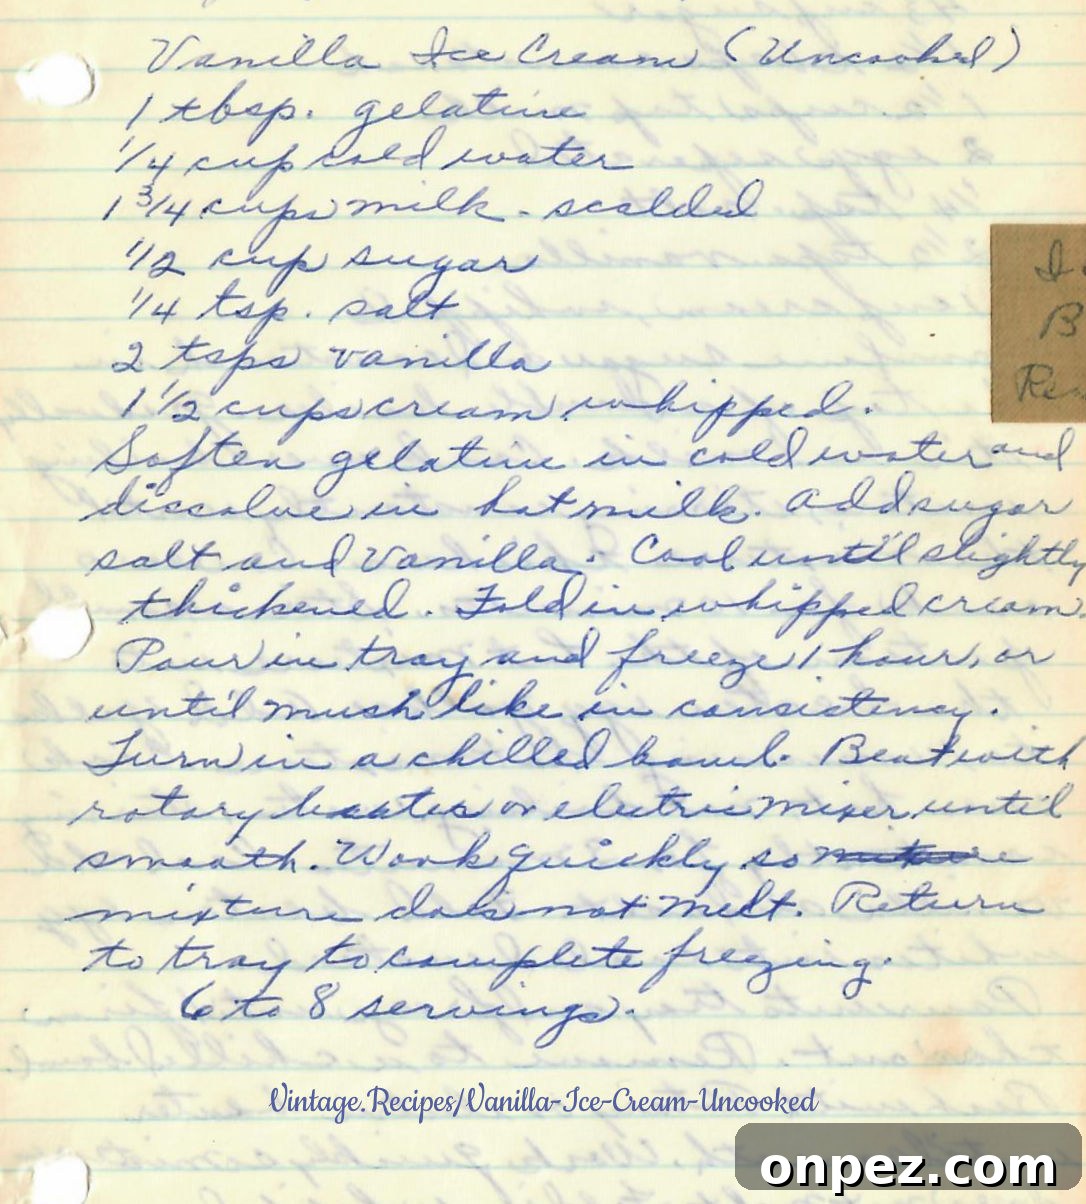 Vanilla Ice Cream (Uncooked)
1 tbsp. gelatine
1/4 cup cold water
1 3/4 cups milk - scalded
1/2 cup sugar
1/4 tsp. salt
2 tsps vanilla
1 1/2 cups cream whipped.
Soften gelatine in cold water and
dissolve in hot milk. Add sugar
salt and Vanilla. Cool until slightly
thickened. Fold in whipped cream.
Pour in tray and freeze 1 hour, or
until mush like in consistency.
Turn in a chilled bowl. Beat with
rotary beater or electric mixer until
smooth. Work quickly so
mixture does not melt. Return
to tray to complete freezing.
6 to 8 servings.
Vintage.Recipes/Vanilla-Ice-Cream-Uncooked
onpez.com